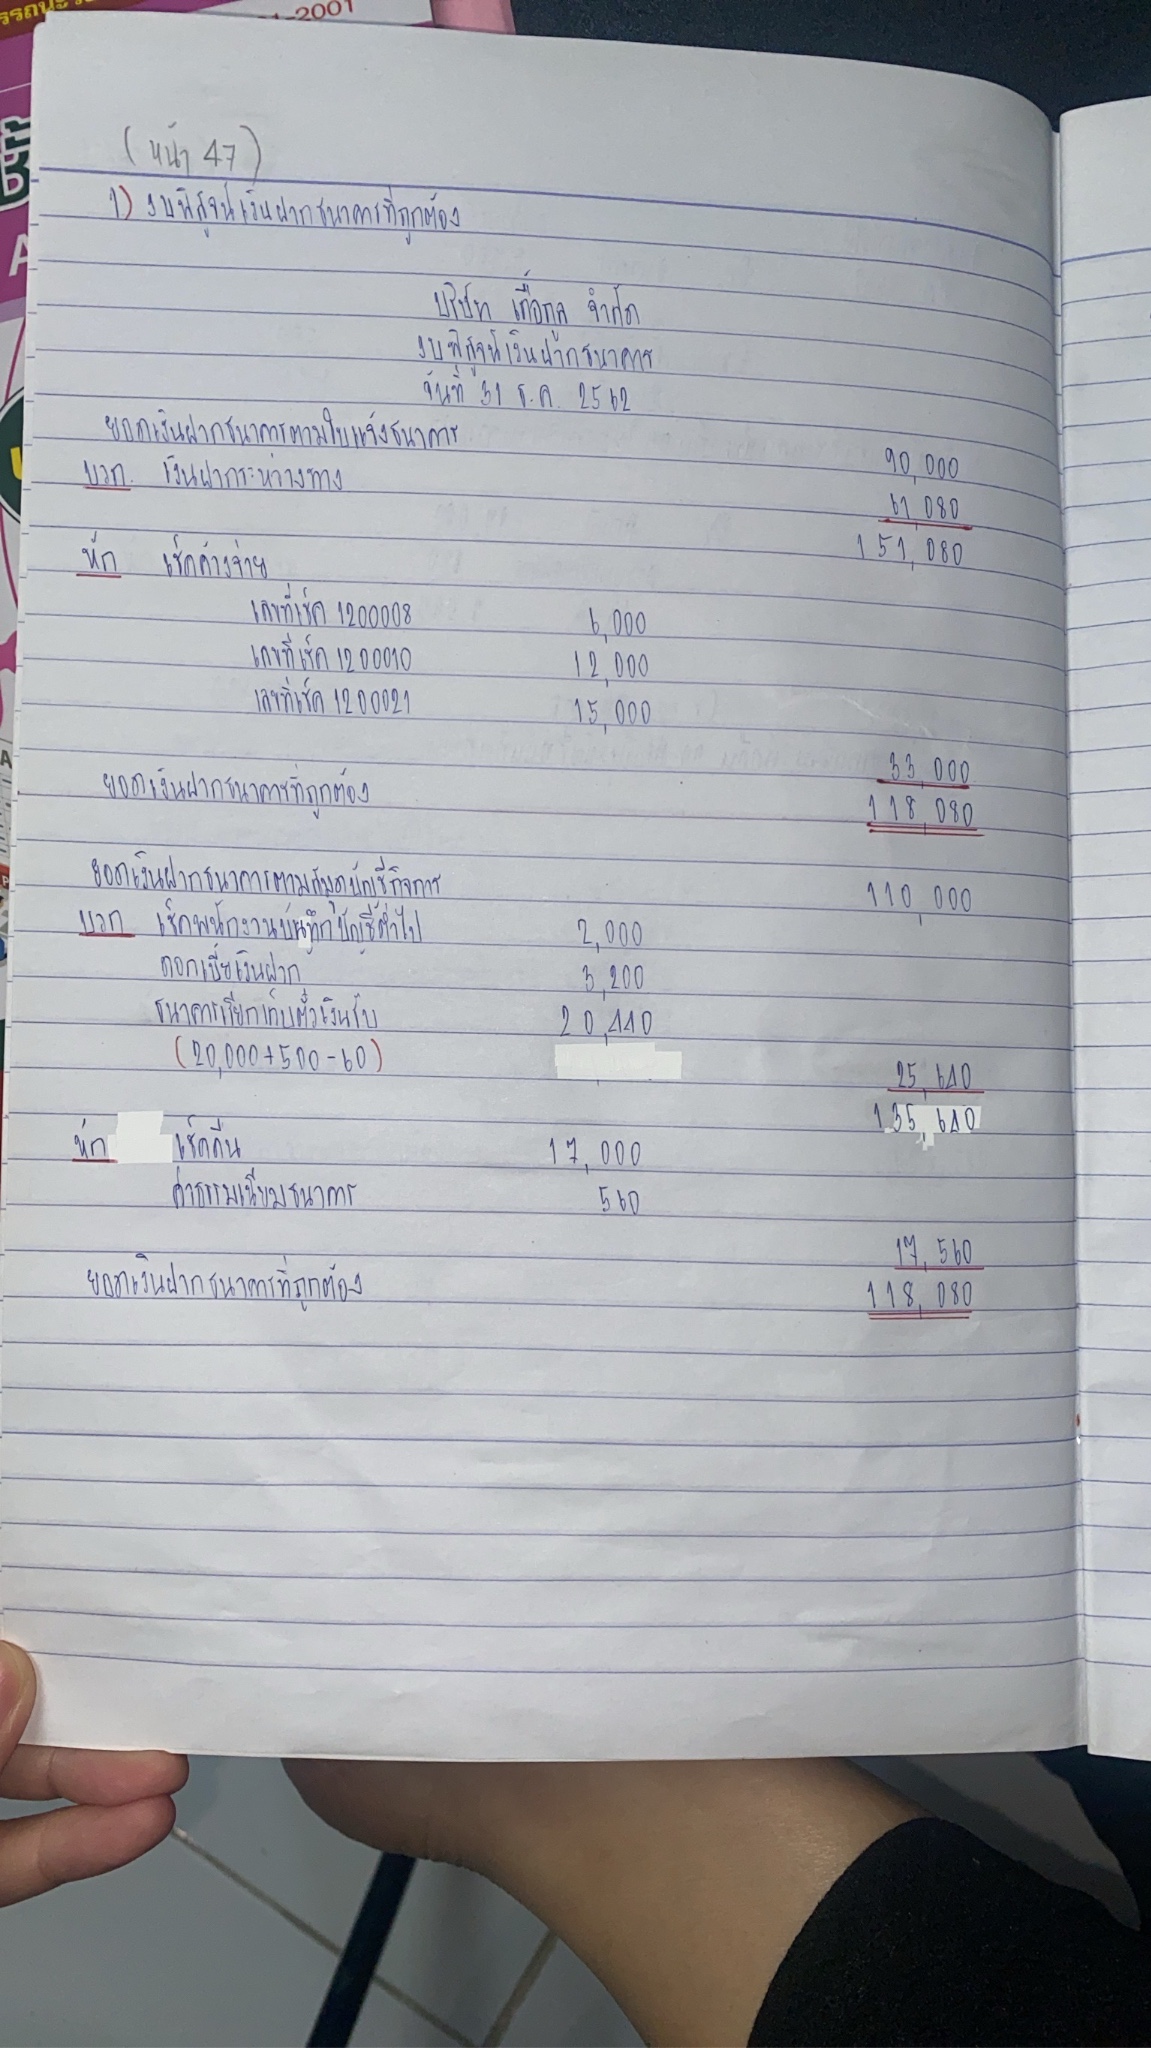 -2001
(หน้า 47)
1) งบพิสูจน์เงินฝากธนาคารที่ถูกต้อง
บริษัท เกื้อกูล จำกัด
งบพิสูจน์เงินฝากธนาคาร
วันที่ 31 ธ.ค. 2562
ยอดเงินฝากธนาคารตามใบแจ้งธนาคาร 90,000
บวก เงินฝากระหว่างทาง 61,080
151,080
หัก เช็คค้างจ่าย
เลขที่เช็ค 1200008 6,000
เลขที่เช็ค 1200010 12,000
เลขที่เช็ค 1200021 15,000
33,000
ยอดเงินฝากธนาคารที่ถูกต้อง 118,080
ยอดเงินฝากธนาคารตามสมุดบัญชีกิจการ 110,000
บวก เช็คพนักงานบันทึกบัญชีต่ำไป 2,000
ดอกเบี้ยเงินฝาก 3,200
ธนาคารเรียกเก็บตั๋วเงินรับ 20,440
(20,000+500-60) 25,640
135,640
หัก เช็คคืน 17,000
ค่าธรรมเนียมธนาคาร 560
17,560
ยอดเงินฝากธนาคารที่ถูกต้อง 118,080